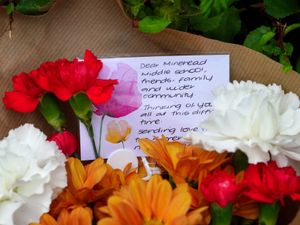 Dear Minehead
Middle school,
friends, family
and wider
community
Thinking of you
all at this diff
time
Sending love